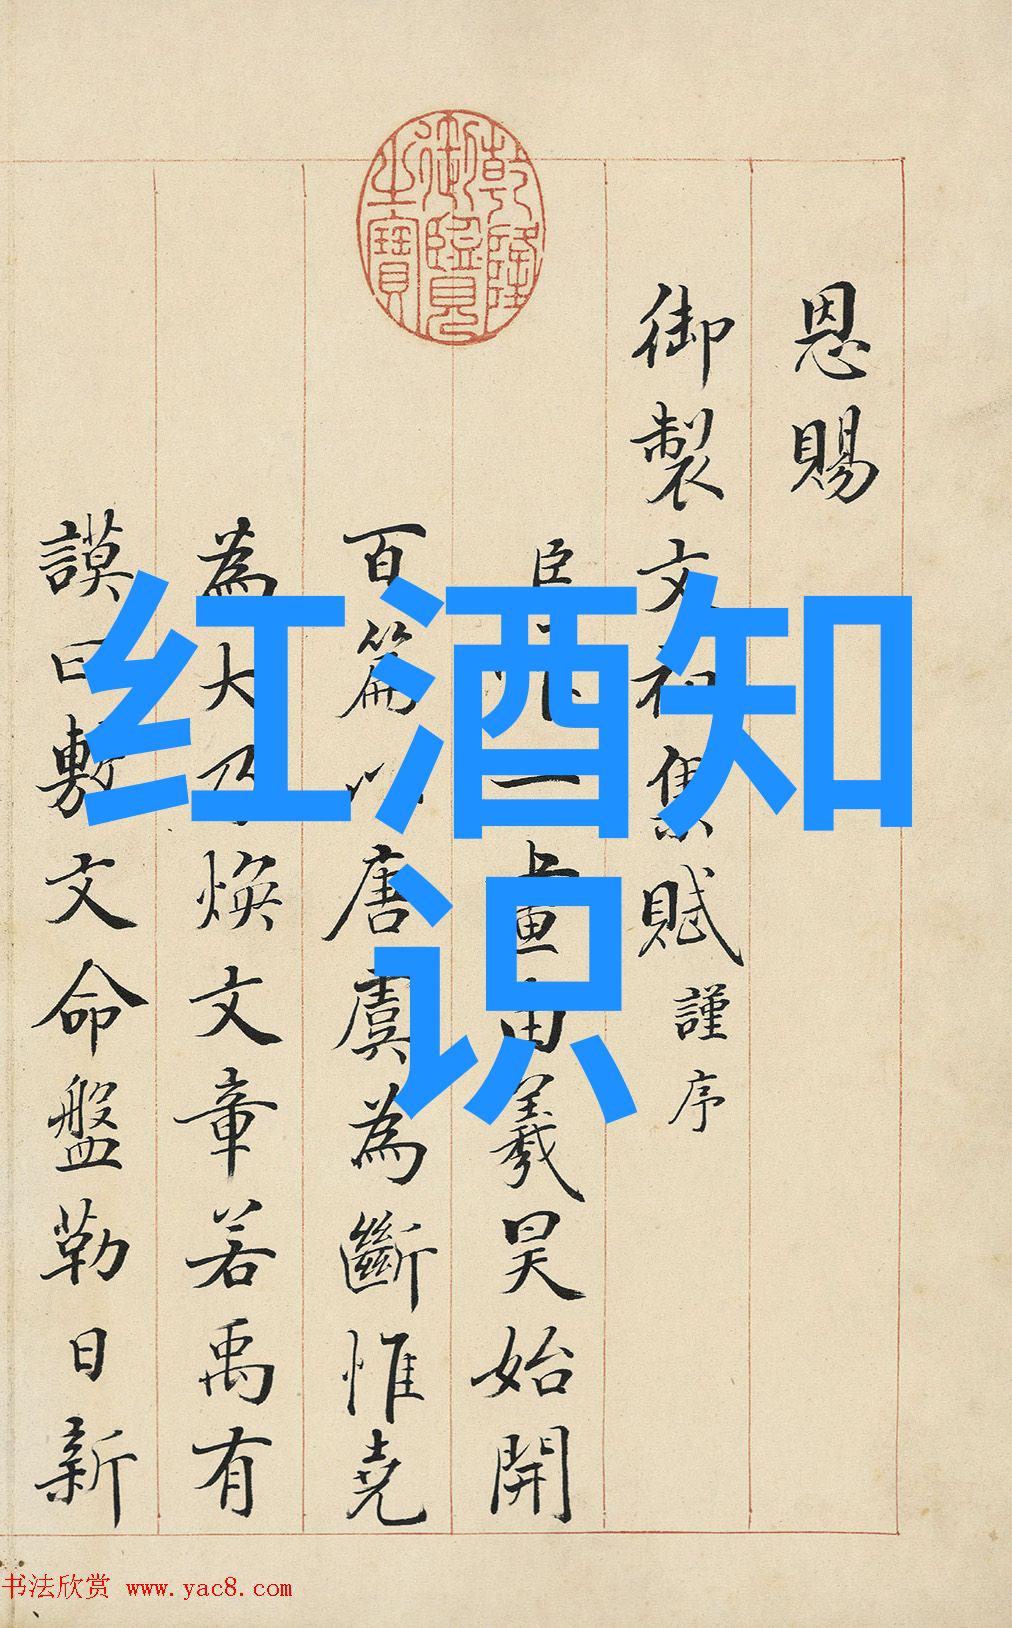 恩賜
御製文初集賦謹序
臣聞一畫由羲昊始開
百篇以唐虞為斷惟堯
為大乃煥文章若禹有
謨曰敷文命盤勒日新
乾隆御覽之寶
红酒知
识
书法欣赏 www.yac8.com